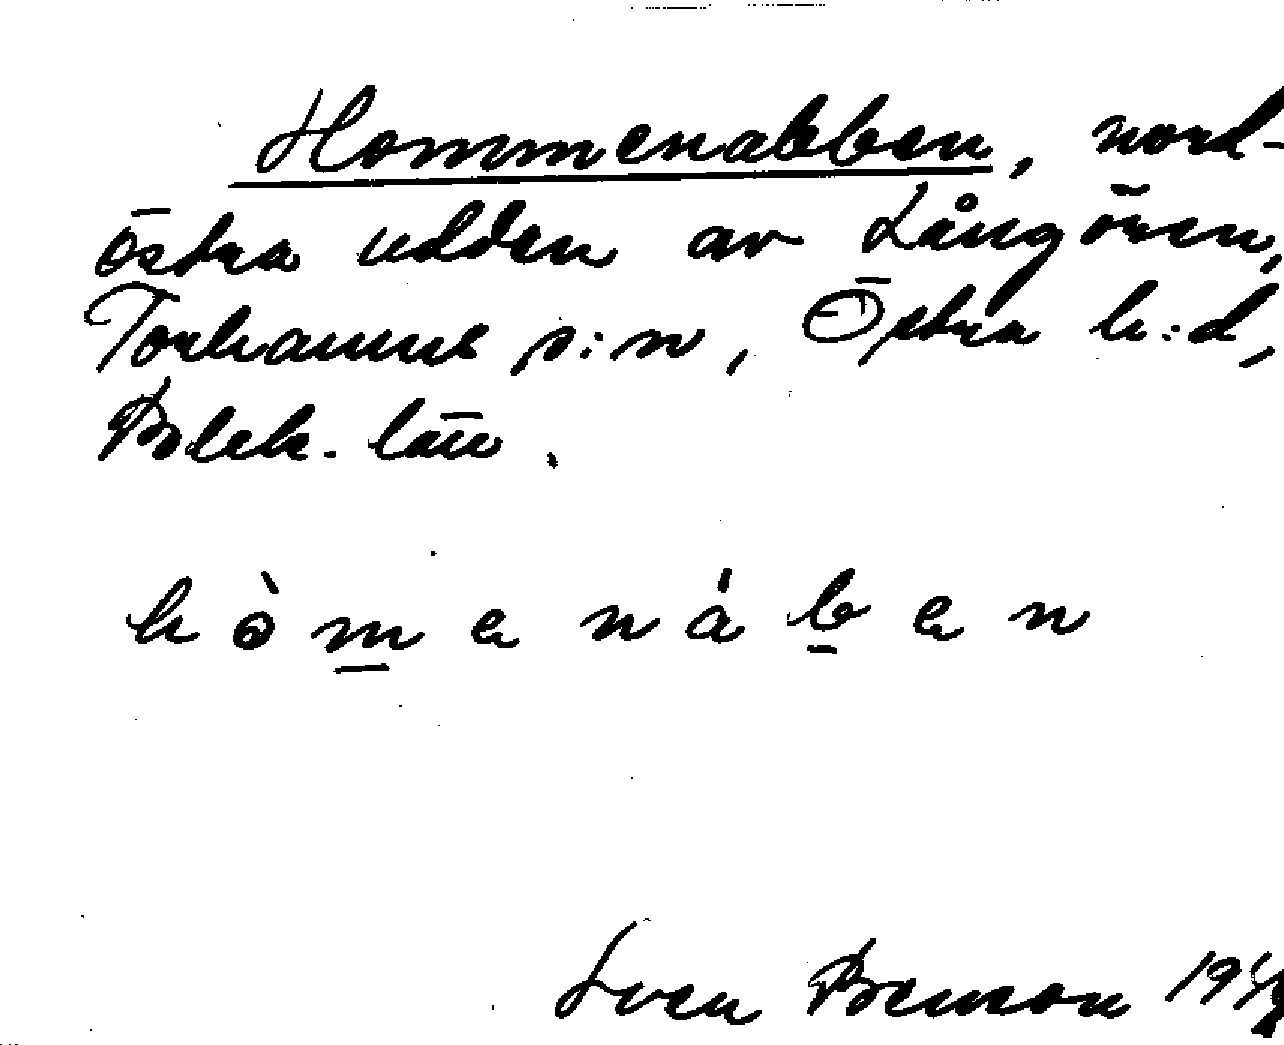 Hommenabben, nord-
östra udden av Långören,
Torhamns s:n, Östra h:d,
Blek. län.
hòmenáben
Sven Benson